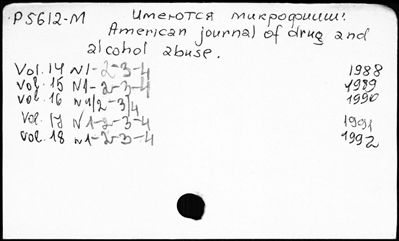 P5612-M Имеются микрофиши:
American journal of drug and
alcohol abuse.
Vol. 14 N1-2-3-4 1988
Vol. 15 N1-2-3-4 1989
Vol. 16 N1/2-3/4 1990
Vol. 17 N1-2-3-4 1991
Vol. 18 N1-2-3-4 1992